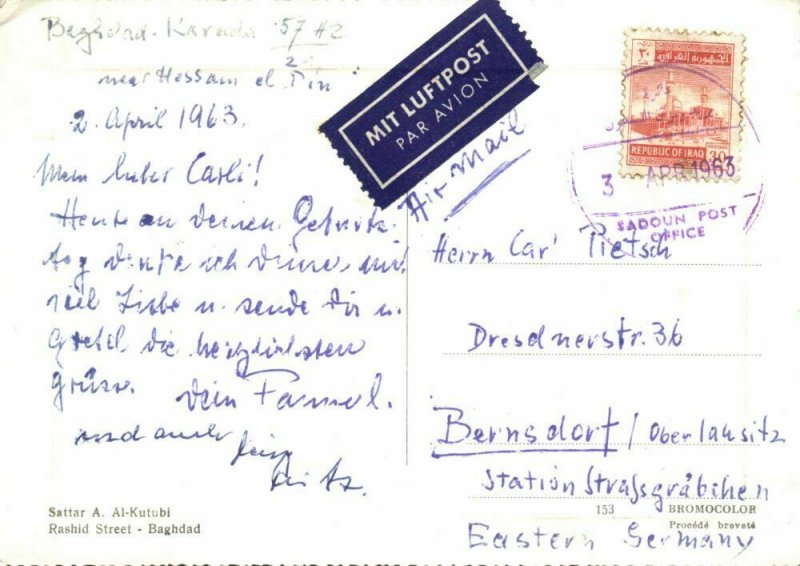 Baghdad-Karada 57 H2
near Hessam el Din
2. April 1963.
Mein lieber Carli!
Heute an deinem Geburts-
tag denke ich deiner mit
viel Liebe u. sende Dir u.
Gretel die herzlichsten
Grüsse. Dein
und auch
Sattar A. Al-Kutubi
Rashid Street - Baghdad
MIT LUFTPOST
PAR AVION
Air mail
الجمهورية العراقية
٣٠
REPUBLIC OF IRAQ
POSTAGE
30
3 APR 1963
SADOUN POST
OFFICE
Herrn Carl Pietsch
Dresdnerstr. 36
Bernsdorf / Oberlausitz
Station Strassgräbchen
153 BROMOCOLOR
Procédé breveté
Eastern Germany